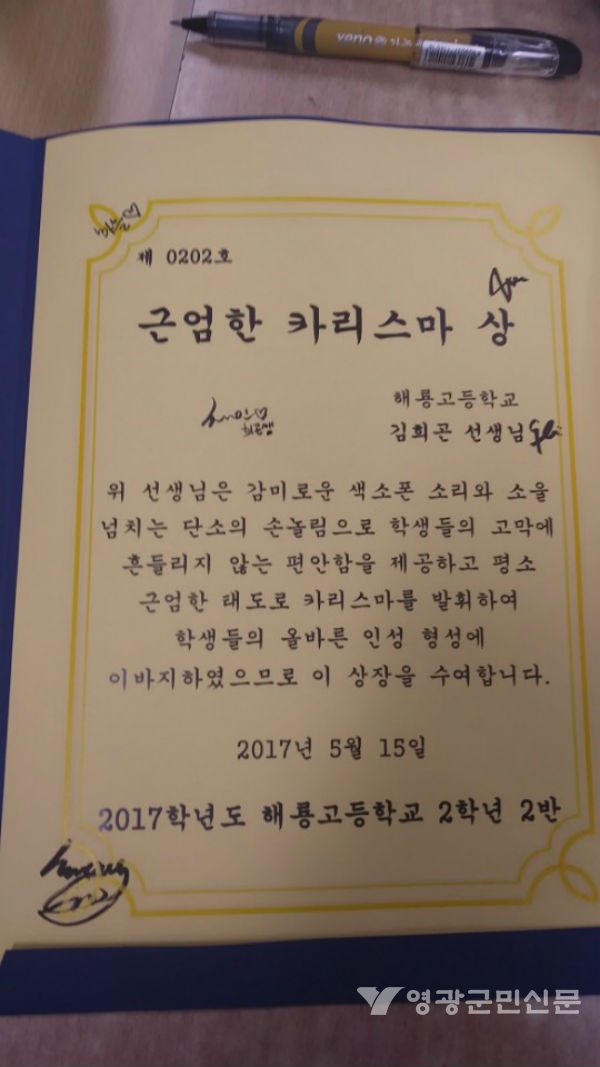 제 0202호
근엄한 카리스마 상
해룡고등학교
김희곤 선생님
위 선생님은 감미로운 색소폰 소리와 소울
넘치는 단소의 손놀림으로 학생들의 고막에
흔들리지 않는 편안함을 제공하고 평소
근엄한 태도로 카리스마를 발휘하여
학생들의 올바른 인성 형성에
이바지하였으므로 이 상장을 수여합니다.
2017년 5월 15일
2017학년도 해룡고등학교 2학년 2반
영광군민신문